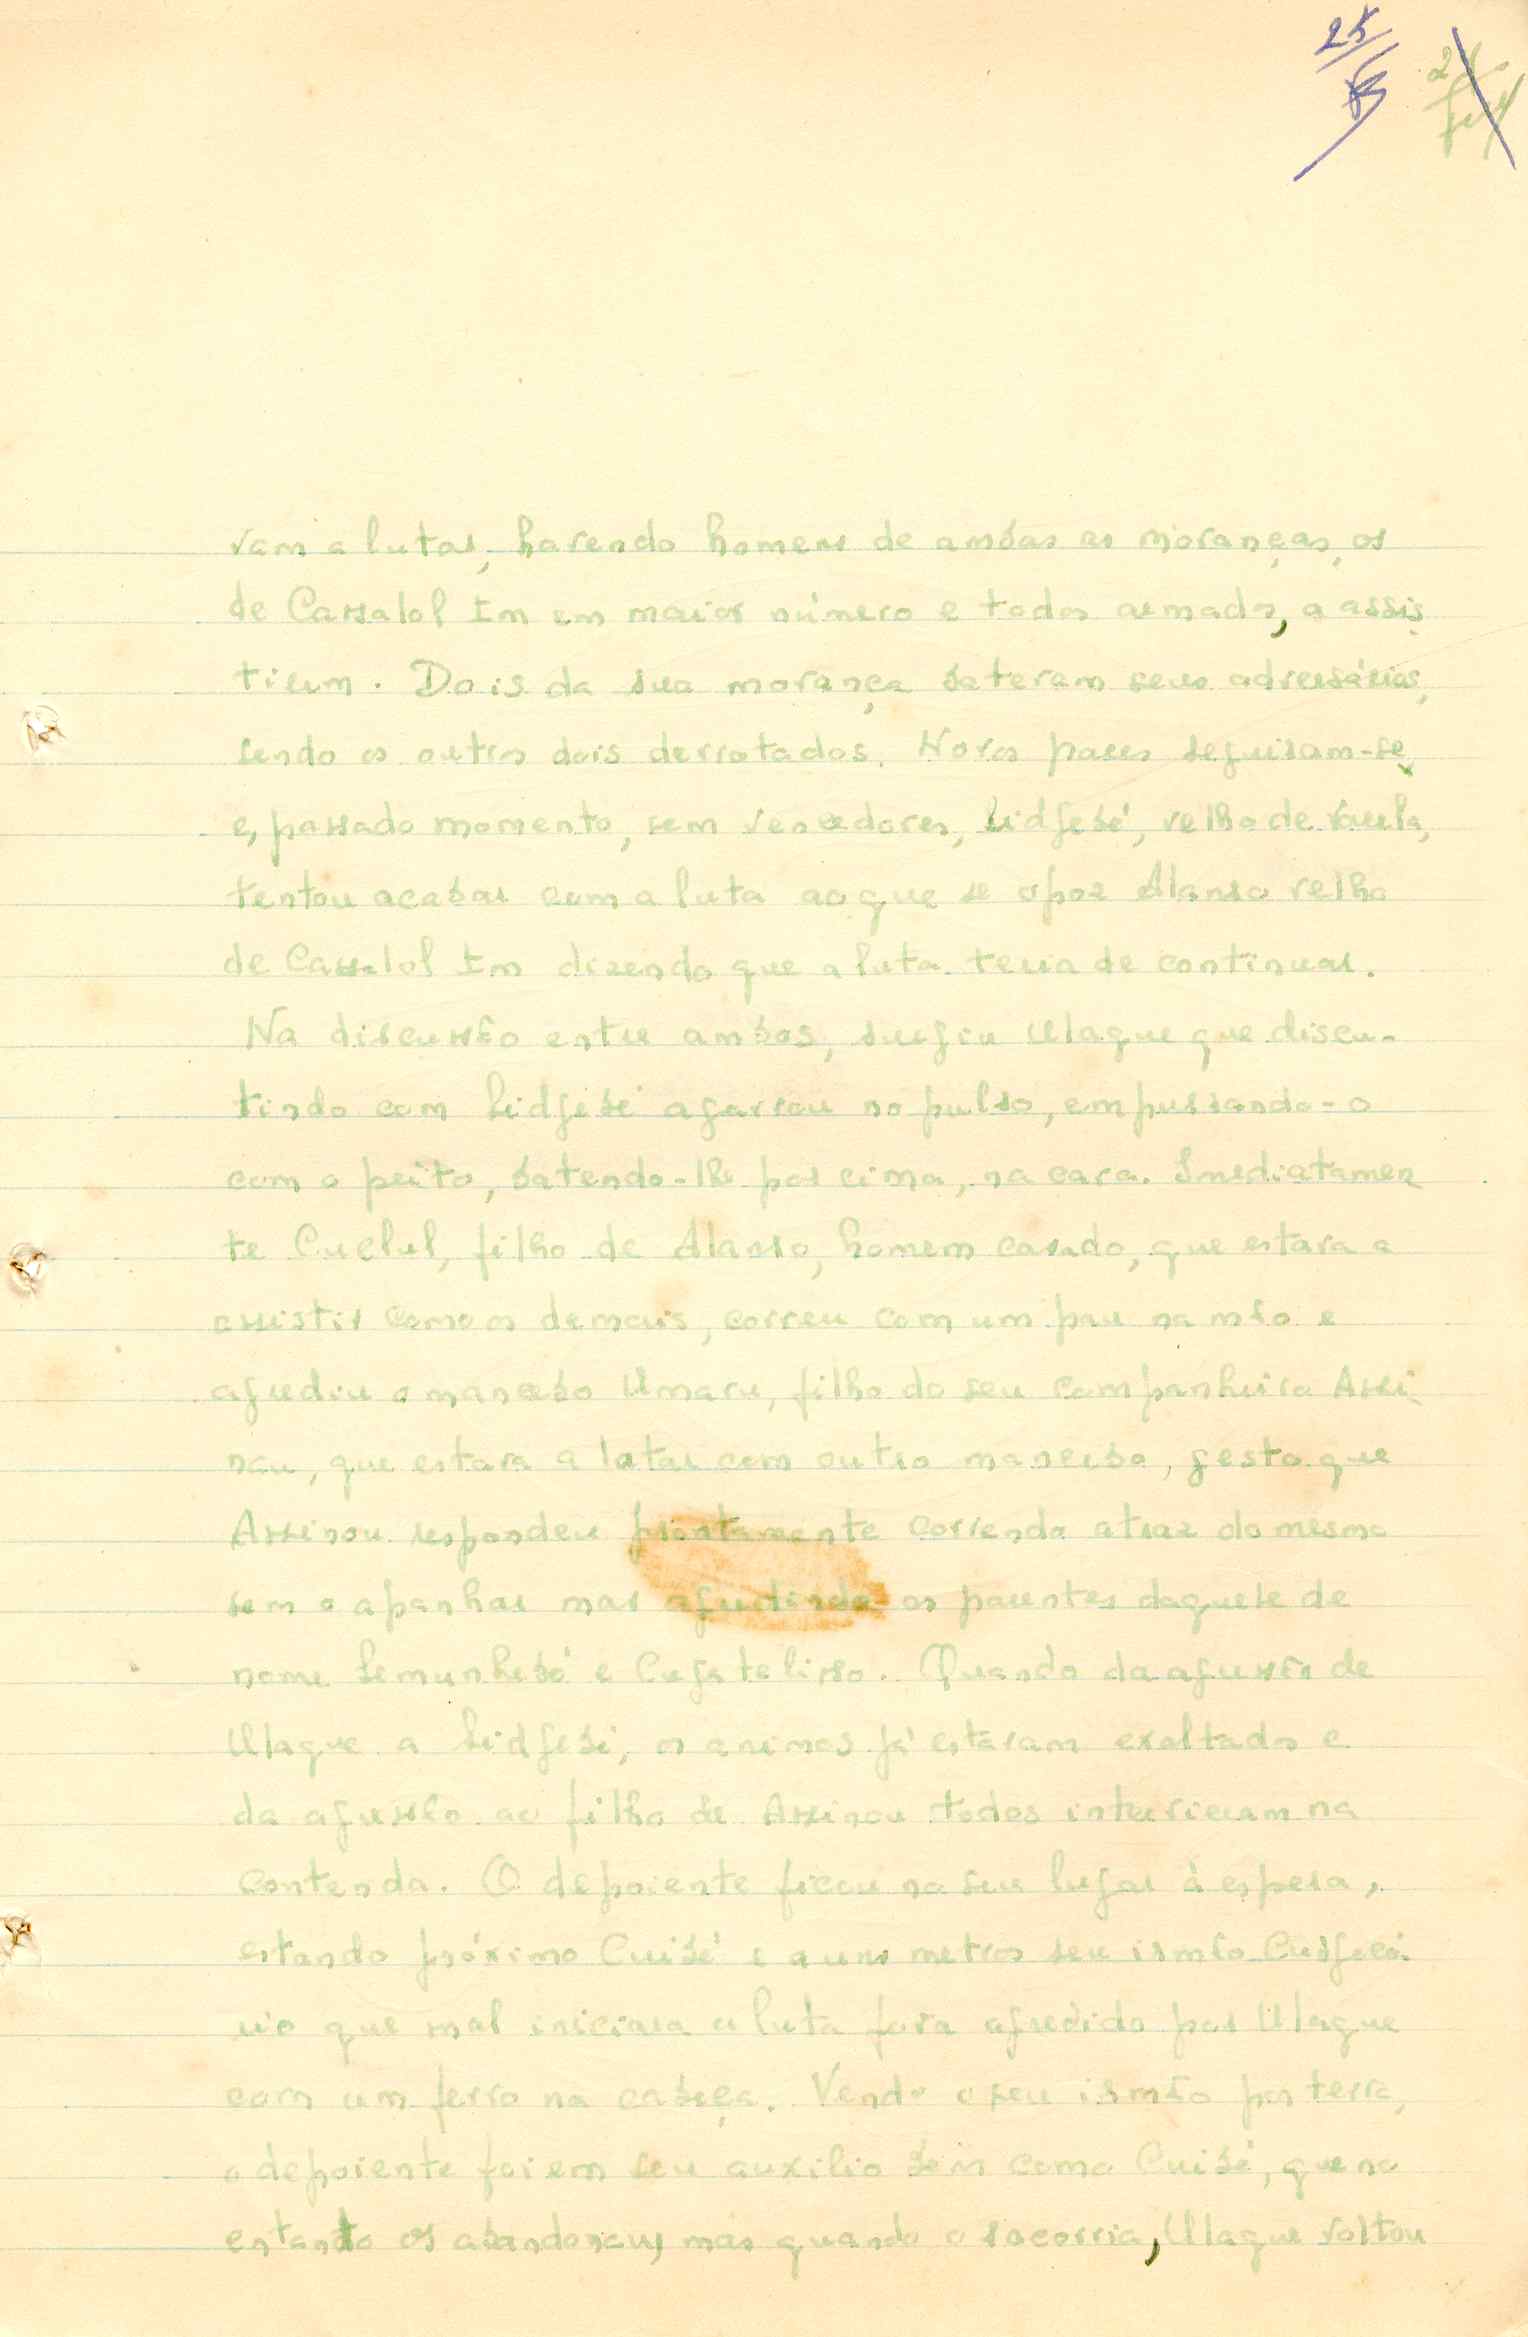 25
24
vam a lutar, havendo homens de ambas as moranças, os
de Cassalol Em em maior número e todos armados, a assis
tirem. Dois da sua morança bateram seus adversários,
sendo os outros dois derrotados. Novos pares seguiram-se,
e, passado momento, sem vencedores, Lidjebé, velho de Varela,
tentou acabar com a luta ao que se opoz Alanso velho
de Cassalol Em dizendo que a luta teria de continuar.
Na discussão entre ambos, surgiu Ulaque que discu-
tindo com Lidjebé agarrou no pulso, empurrando-o
com o peito, batendo-lhe por cima, na cara. Imediatamen
te Cuelul, filho de Alanso, homem casado, que estava a
assistir como os demais, correu com um pau na mão e
agrediu o mancebo Umaru, filho do seu companheiro Assi
nou, que estava a lutar com outro mancebo, gesto que
Assinou respondeu prontamente correndo atraz do mesmo
sem o apanhar mas agredindo os parentes daquele de
nome Semunhebó e Cujatelisso. Quando da agressão de
Ulaque a Lidjebé, os animos já estavam exaltados e
da agressão ao filho de Assinou todos intervieram na
contenda. O depoiente ficou no seu lugar à espera,
estando próximo Cuibé e a uns metros seu irmão
que mal iniciara a luta fora agredido por Ulaque
com um ferro na cabeça. Vendo o seu irmão por terra,
o depoiente foi em seu auxilio bem como Cuibé, que no
entanto os abandonou, mas quando o socorria, Ulaque voltou